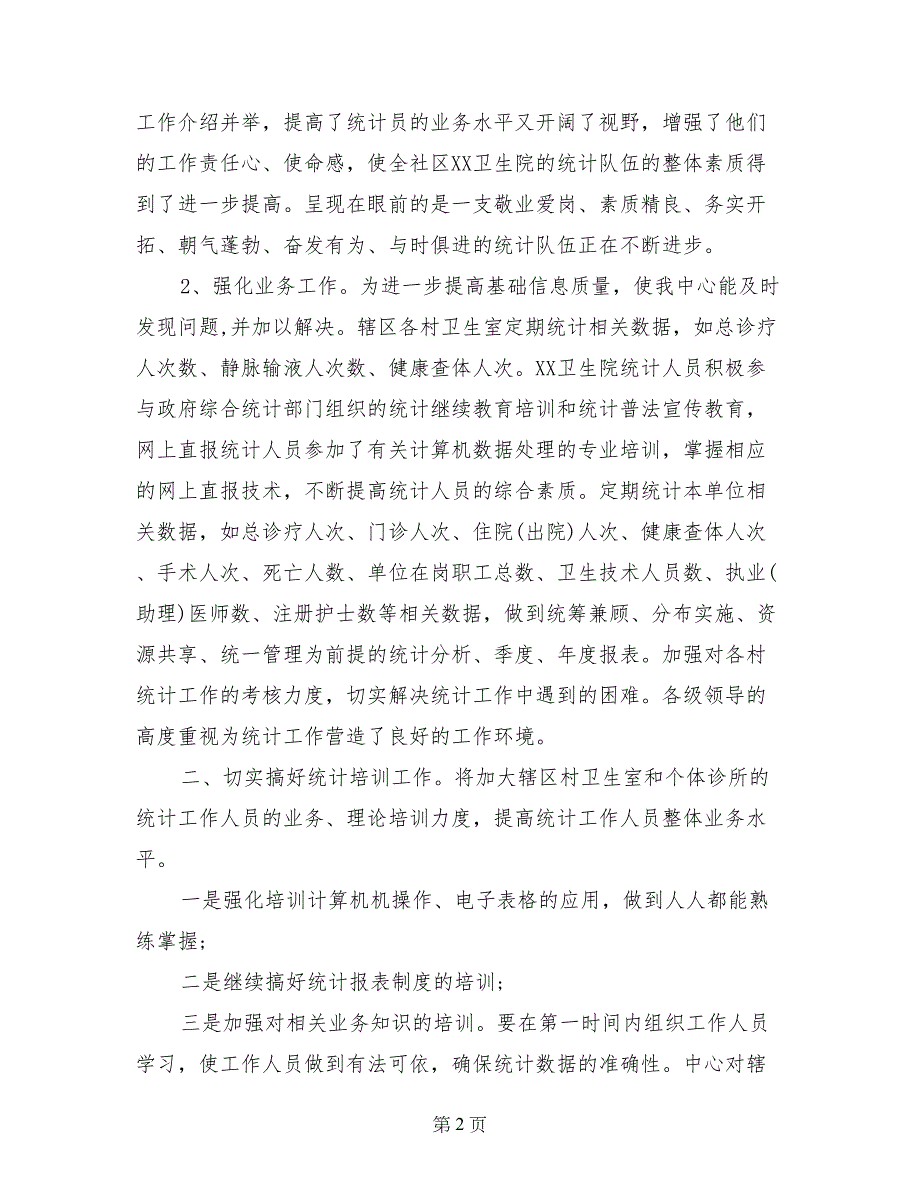 工作介绍并举，提高了统计员的业务水平又开阔了视野，增强了他们
的工作责任心、使命感，使全社区XX卫生院的统计队伍的整体素质得
到了进一步提高。呈现在眼前的是一支敬业爱岗、素质精良、务实开
拓、朝气蓬勃、奋发有为、与时俱进的统计队伍正在不断进步。
2、强化业务工作。为进一步提高基础信息质量，使我中心能及时
发现问题,并加以解决。辖区各村卫生室定期统计相关数据，如总诊疗
人次数、静脉输液人次数、健康查体人次。XX卫生院统计人员积极参
与政府综合统计部门组织的统计继续教育培训和统计普法宣传教育，
网上直报统计人员参加了有关计算机数据处理的专业培训，掌握相应
的网上直报技术，不断提高统计人员的综合素质。定期统计本单位相
关数据，如总诊疗人次、门诊人次、住院(出院)人次、健康查体人次
、手术人次、死亡人数、单位在岗职工总数、卫生技术人员数、执业(
助理)医师数、注册护士数等相关数据，做到统筹兼顾、分布实施、资
源共享、统一管理为前提的统计分析、季度、年度报表。加强对各村
统计工作的考核力度，切实解决统计工作中遇到的困难。各级领导的
高度重视为统计工作营造了良好的工作环境。
二、切实搞好统计培训工作。将加大辖区村卫生室和个体诊所的
统计工作人员的业务、理论培训力度，提高统计工作人员整体业务水
平。
一是强化培训计算机机操作、电子表格的应用，做到人人都能熟
练掌握;
二是继续搞好统计报表制度的培训;
三是加强对相关业务知识的培训。要在第一时间内组织工作人员
学习，使工作人员做到有法可依，确保统计数据的准确性。中心对辖
第 2 页